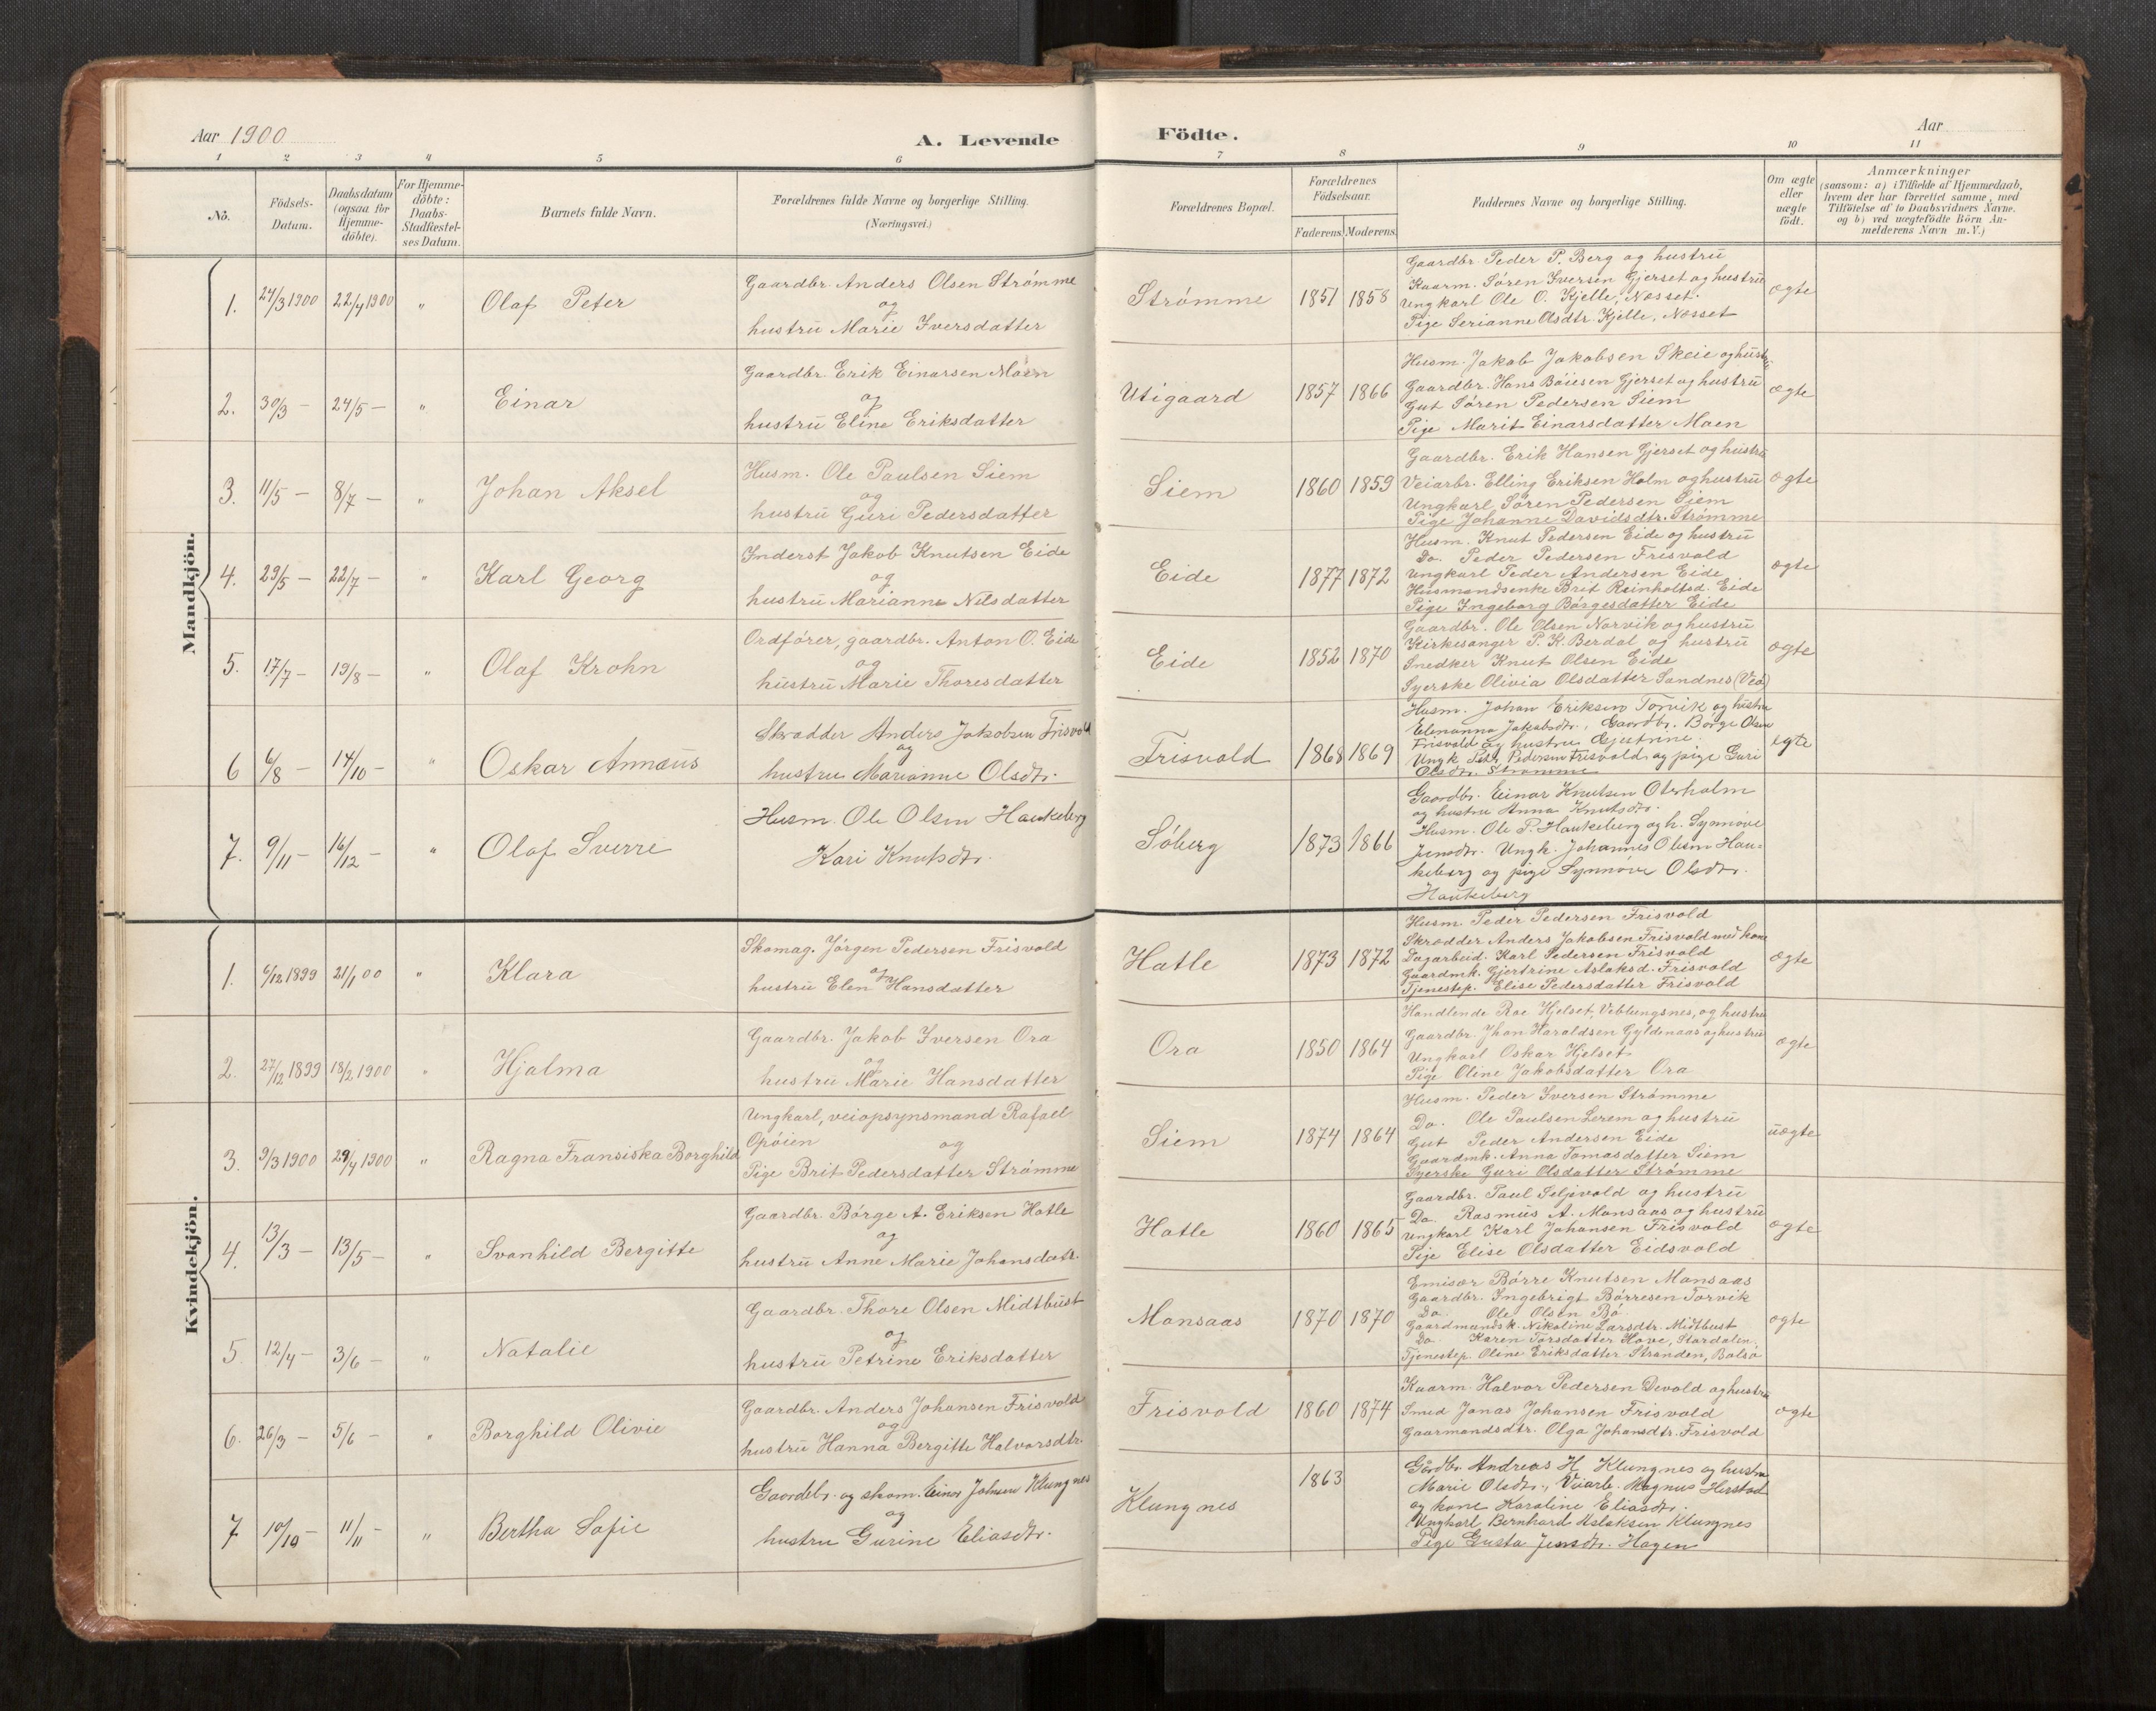 Aar 1900
A. Levende Födte.
Aar
1 2 3 4 5 6 7 8 9 10 11
No.
Födsels-Datum.
Daabsdatum (ogsaa for Hjemme-döbte).
For Hjemme-döbte: Daabs-Stadfæstel-ses Datum.
Barnets fulde Navn.
Forældrenes fulde Navne og borgerlige Stilling.
(Næringsvei.)
Forældrenes Bopæl.
Forældrenes Födselsaar.
Faderens. Moderens.
Faddernes Navne og borgerlige Stilling.
Om ægte eller uægte födt.
Anmærkninger
(saasom: a) i Tilfælde af Hjemmedaab,
hvem der har forrettet samme, med
Tilföielse af to Daabsvidners Navne.
og b) ved uægtefödte Börn An-
melderens Navn m.V.)
Mandkjön.
1. 24/3 1900 22/4 1900 " Olaf Peter
Gaardbr. Anders Olsen Strömme
og
hustru Marie Iversdatter
Strömme 1851 1858
Gaardbr. Peder P. Berg og hustru
Kaarm. Sören Iversen Gjerset og hustru
Ungkarl Ole O. Kjelle, Næsset.
Pige Serianne Olsdtr. Kjelle, Næsset
ægte
2. 30/3 – 24/5 – " Einar
Gaardbr. Erik Einarsen Moen
og
hustru Eline Eriksdatter
Utigaard 1857 1866
Husm. Jakob Jakobsen Skeie og hustru
Gaardbr. Hans Böiesen Gjerset og hustru
Gut Sören Pedersen Siem
Pige Marit Einarsdatter Moen
ægte
3. 11/5 – 8/7 – " Johan Aksel
Husm. Ole Paulsen Siem
og
hustru Guri Pedersdatter
Siem 1860 1859
Gaardbr. Erik Hansen Gjerset og hustru
Veiarbr. Elling Eriksen Holm og hustru
Ungkarl Sören Pedersen Siem
Pige Johanne Davidsdtr. Strömme
ægte
4. 29/5 – 22/7 – " Karl Georg
Inderst Jakob Knutsen Eide
og
hustru Marianne Nilsdatter
Eide 1877 1872
Husm. Knut Pedersen Eide og hustru
Do. Peder Pedersen Frisvold
Ungkarl Peder Andersen Eide
Husmandsenke Brit Reinholtsd. Eide
Pige Ingeborg Börgesdatter Eide
ægte
5. 17/7 – 19/8 – " Olaf Krohn
Ordförer, gaardbr. Anton O. Eide
og
hustru Marie Thoresdatter
Eide 1852 1870
Gaardbr. Ole Olsen Norvik og hustru
Kirkesanger P. K. Berdal og hustru
Snedker Knut Olsen Eide
Syerske Olivia Olsdatter Sandnes (Veö)
ægte
6 6/8 – 14/10 – " Oskar Annæus
Skrædder Anders Jakobsen Frisvold
og
hustru Marianne Olsdtr.
Frisvold 1868 1869
Husm. Johan Eriksen Torvik og hustru
Elenanna Jakobsdtr., Gaardbr. Börge Olsen
Frisvold og hustru Gjertrine.
Ungk. Pedersen Frisvold og pige Guri
Olsdtr. Strömme
egte
7. 9/11 – 16/12 – " Olaf Sverre
Husm. Ole Olsen Haukeberg
Kari Knutsdtr.
Söberg 1873 1866
Gaardbr. Einar Knutsen Oterholm
og hustru Anna Knutsdtr.
Husm. Ole P. Haukeberg og h. Synnöve
Jensdtr. Ungk. Johannes Olsen Hau-
keberg og pige Synnöve Olsdtr.
Haukeberg
Kvindekjön.
1. 6/12 1899 21/1 00 " Klara
Skomag. Jörgen Pedersen Frisvold
og
hustru Elen Hansdatter
Hatle 1873 1872
Husm. Peder Pedersen Frisvold
Skrædder Anders Jakobsen Frisvold med kone
Dagarbeid. Karl Pedersen Frisvold
Gaardmk. Gjertrine Aslaksd. Frisvold
Tjenestep. Elise Pedersdatter Frisvold
ægte
2. 27/12 1899 18/2 1900 " Hjalma
Gaardbr. Jakob Iversen Ora
og
hustru Marie Hansdatter
Ora 1850 1864
Handlende Roe Hjelset, Veblungsnes, og hustru
Gaardbr. Jhon Haraldsen Gyldenaas og hustru
Ungkarl Oskar Hjelset
Pige Oline Jakobsdatter Ora
ægte
3. 9/3 1900 29/4 1900 " Ragna Fransiska Borghild
Ungkarl, veiopsynsmand Rafael
Opöien og
Pige Brit Pedersdatter Strömme
Siem 1874 1864
Husm. Peder Iversen Strömme
Do. Ole Paulsen Lerem og hustru
Gut Peder Andersen Eide
Gaardmk. Anna Tomasdatter Siem
Syerske Guri Olsdatter Strömme
uægte
4. 13/3 – 13/5 – " Svanhild Bergitte
Gaardbr. Börge A. Eriksen Hatle
og
hustru Anne Marie Johansdatr.
Hatle 1860 1865
Gaardbr. Paul Seljvold og hustru
Do. Rasmus A. Monsaas og hustru
Ungkarl Karl Johansen Frisvold
Pige Elise Olsdatter Eidsvold
ægte
5. 12/4 – 3/6 – " Natalie
Gaardbr. Thore Olsen Midtbust
og
hustru Petrine Eriksdatter
Monsaas 1870 1870
Emisær Börre Knutsen Monsaas
Gaardbr. Ingebrigt Börresen Torvik
Do. Ole Olsen Bö
Gaardmandsk. Nikoline Larsdtr. Midtbust
Do. Karen Torsdatter Hove, Stardalen.
Tjenestep. Oline Eriksdatter Stranden, Bolsö
ægte
6. 26/3 – 5/6 – " Borghild Olivie
Gaardbr. Anders Johansen Frisvold
og
hustru Hanna Bergitte Halvorsdtr.
Frisvold 1860 1874
Kaarm. Halvor Pedersen Devold og hustru
Smed Jonas Johansen Frisvold
Gaarmandsdtr. Olga Johansdtr. Frisvold
ægte
7 10/10 – 11/11 – " Bertha Sofie
Gaardbr. og skom. Einar Johnsen Klungnes
og
hustru Gurine Eliasdtr.
Klungnes 1863
Gårdbr. Andreas H Klungnes og hustru
Marie Olsdtr., Veiarb. Magnus Herstad
og kone Karoline Eliasdtr.
Ungkarl Bernhard Aslaksen Klungnes
Pige Gusta Jensdtr. Hagen